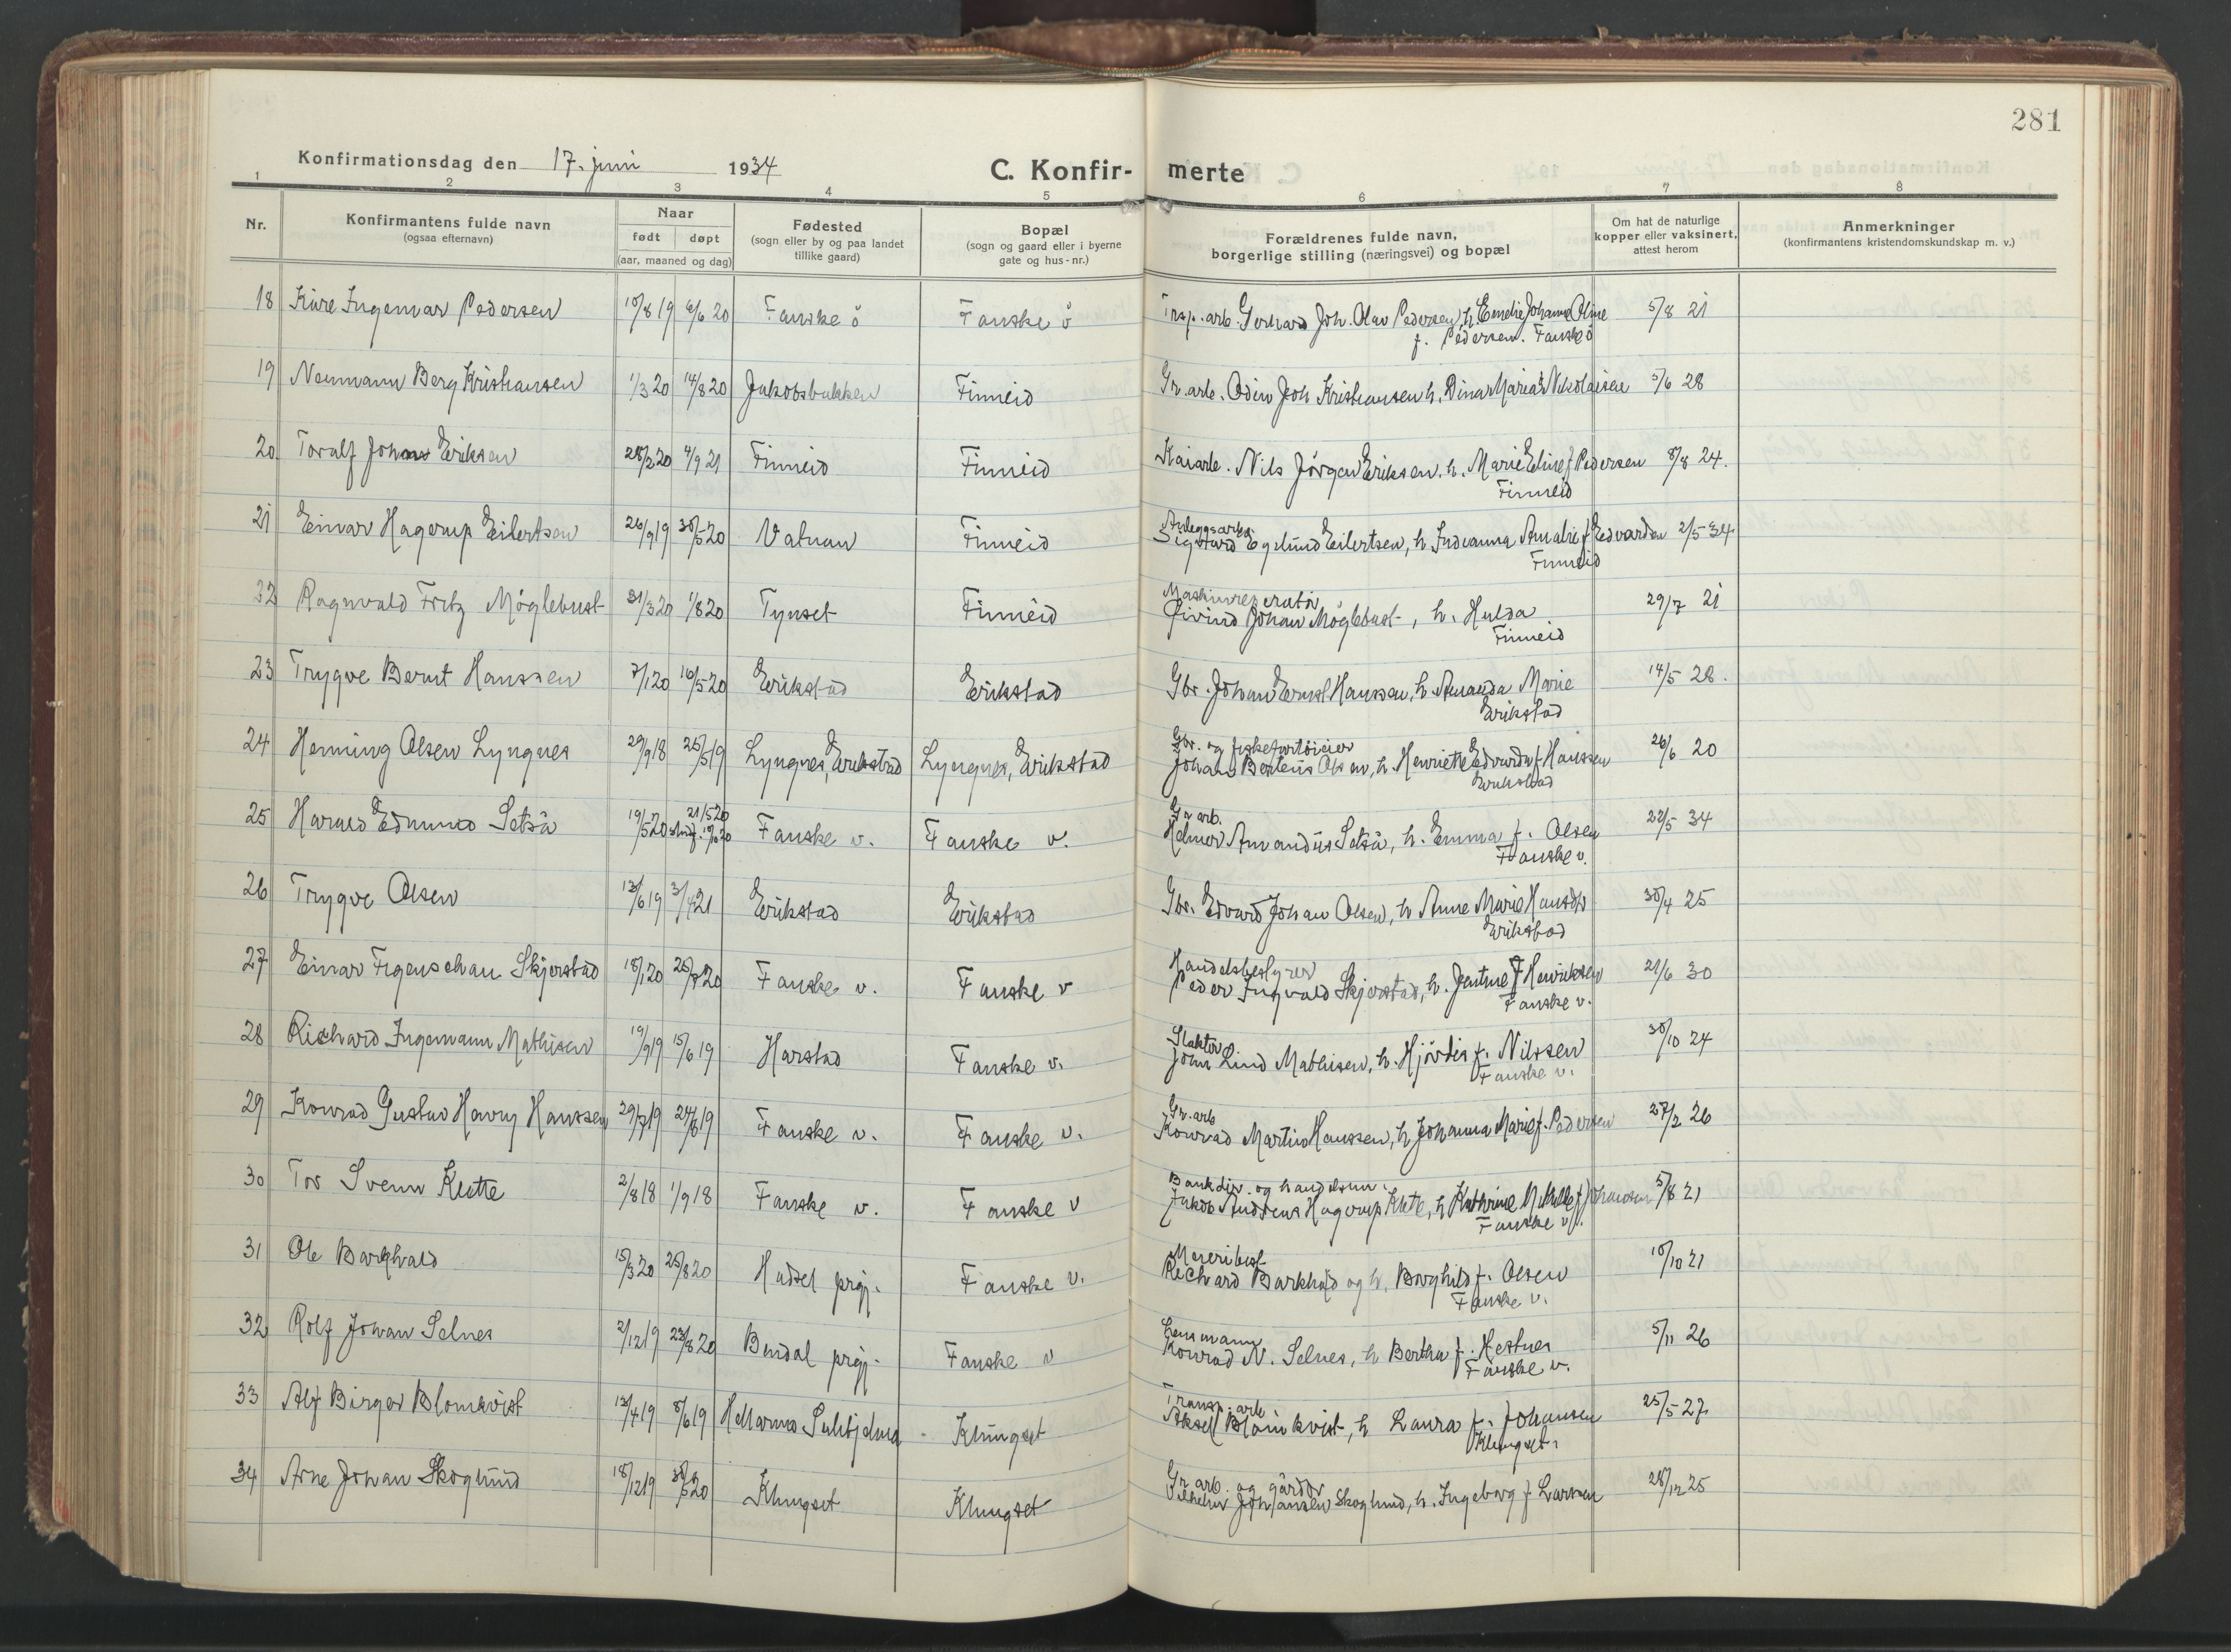 281
Konfirmationsdag den 17. juni 1934
C. Konfir- merte
1 2 3 4 5 6 7 8
Nr.
Konfirmantens fulde navn
(ogsaa efternavn)
Naar
født døpt
(aar, maaned og dag)
Fødested
(sogn eller by og paa landet
tillike gaard)
Bopæl
(sogn og gaard eller i byerne
gate og hus-nr.)
Forældrenes fulde navn,
borgerlige stilling (næringsvei) og bopæl
Om hat de naturlige
kopper eller vaksinert,
attest herom
Anmerkninger
(konfirmantens kristendomskundskap m. v.)
18 Kåre Ingemar Pedersen 19 6/6 20 Fauske ö Fauske ö Trsp. arb. Gerhard Joh. Olav Pedersen, h. Emelie Johanne Oline 5/8 21
f. Pedersen. Fauske ö
19 Neumann Berg Kristiansen 1/3 20 14/8 20 Jakobsbakken Finneid Gr. arb. Odin Joh Kristiansen h. Dina Maria Nikolaisen 5/6 28
20 Toralf Johans Eriksen 28/2 20 4/9 21 Finneid Finneid Kaiarb. Nils Jörgen Eriksen. h. Marie Eline f Pedersen 8/8 24.
Finneid
21 Einar Hagerup Eilertsen 26/9 19 30/5 20 Vatnan Finneid Anleggsarb.
Sigvard Eglund Eilertsen, h. Indianna Amalie f Edvardsen 2/5 34
Finneid
22 Ragnvald Fritz Möglebust 31/3 20 1/8 20 Tynset Finneid Maskinreparatör
Öivind Johan Möglebust, h. Hulda 29/7 21
Finneid
23 Trygve Bernt Hanssen 7/1 20 16/5 20 Erikstad Erikstad Gbr. Johan Ernst Hanssen, h. Amanda Marie 14/5 28.
Erikstad
24 Henning Olsen Lyngnes 29/9 18 25/5 19 Lyngnes, Erikstad Lyngnes, Erikstad Gbr. og fiskefartöieier
Johan Berteus Olsen, h. Henriette Edvarda f. Hanssen 26/6 20
Erikstad
25 Harald Edmund Setså 19/5 20 21/5 20 Fauske v. Fauske v. Gr. arb.
Helmer Amandus Setså, h. Emma f. Olsen 22/5 34
Fauske v.
26 Trygve Olsen 13/6 19 3/4 21 Erikstad Erikstad Gbr. Edvard Johan Olsen, h Anne Marie Hansdtr 30/4 25
Erikstad
27 Einar Figenschau Skjerstad 18/1 20 25/7 20 Fauske v. Fauske v Handelsbestyrer
Peder Ingvald Skjerstad, h. Jentine f Henriksen 21/6 30
Fauske v.
28 Richard Ingemann Mathisen 19 15/6 19 Harstad Fauske v. Slakter
John Lind Mathisen, h. Hjördis f. Nilssen 30/10 24
Fauske v.
29 Konrad Gustav Havny Hanssen 19 24/8 19 Fauske v. Fauske v. Gr. arb
Konrad Martin Hanssen, h Johanna Marie f. Pedersen 27/2 26
30 Tor Svenn Klette 2/8 18 1/9 18 Fauske v. Fauske v Bankdir. og handelsm.
Jakob Andreas Hagerup Klette, h Kathrine Mikelle f Johansen 5/8 21
Fauske v.
31 Ole Barkhald 15/3 20 25/8 20 Hadsel prgj. Fauske v. Meieribest.
Richard Barkhald og h. Borghild f. Olsen 10/10 21
Fauske v.
32 Rolf Johan Selnes 2/12 19 23/8 20 Bindal prgj. Fauske v Lensmann
Konrad N. Selnes, h Bertha f. Hestnes 5/11 26
Fauske v.
33 Alf Birger Blomkvist 13/4 19 8/6 19 Hellarmo Sulitjelma Klungset Transp. arb.
Aksel Blomkvist, h Laura f. Johansen 25/5 27
Klungset
34 Arne Johan Skoglund 18/12 19 30/5 20 Klungset Klungset Gr. arb. og gårdbr
Vilhelm Johansen Skoglund, h. Ingeborg f Larssen 28/12 25